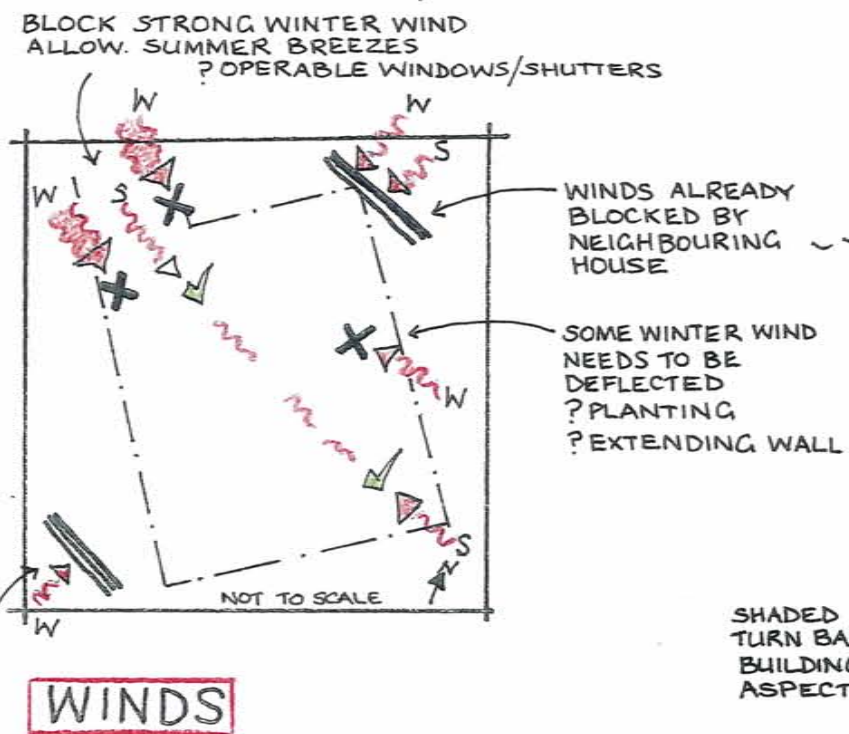 BLOCK STRONG WINTER WIND
ALLOW. SUMMER BREEZES
? OPERABLE WINDOWS/SHUTTERS
W
W
S
W
S
WINDS ALREADY
BLOCKED BY
NEIGHBOURING
HOUSE
SOME WINTER WIND
NEEDS TO BE
DEFLECTED
? PLANTING
? EXTENDING WALL
W
S
N
NOT TO SCALE
W
SHADED
TURN BA
BUILDING
ASPECT
WINDS